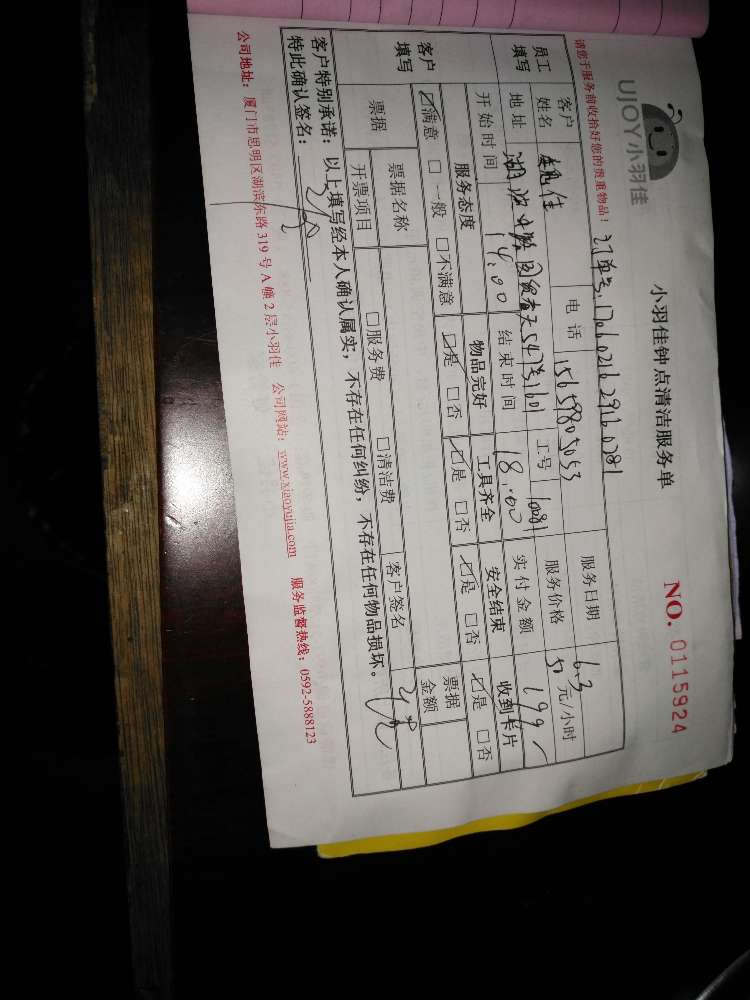 UJOY小羽佳
小羽佳钟点清洁服务单
NO. 0115924
请您于服务前收拾好您的贵重物品!
订单号:
员工填写
客户姓名
电话 15659805053
服务日期 6.3
地址
工号 10081
服务价格 元/小时
开始时间 14:00
结束时间 18:00
实付金额 199
客户填写
服务态度 物品完好 工具齐全 安全结束 收到卡片
☑满意 □一般 □不满意 ☑是 □否 ☑是 □否 ☑是 □否 ☑是 □否
票据
票据名称
票据金额
开票项目 □服务费 □清洁费 客户签名
客户特别承诺:以上填写经本人确认属实,不存在任何纠纷,不存在任何物品损坏。
特此确认签名:
公司地址:厦门市思明区湖滨东路 319 号 A 幢 2 层小羽佳 公司网站:www.xiaoyujia.com 服务监督热线:0592-5888123